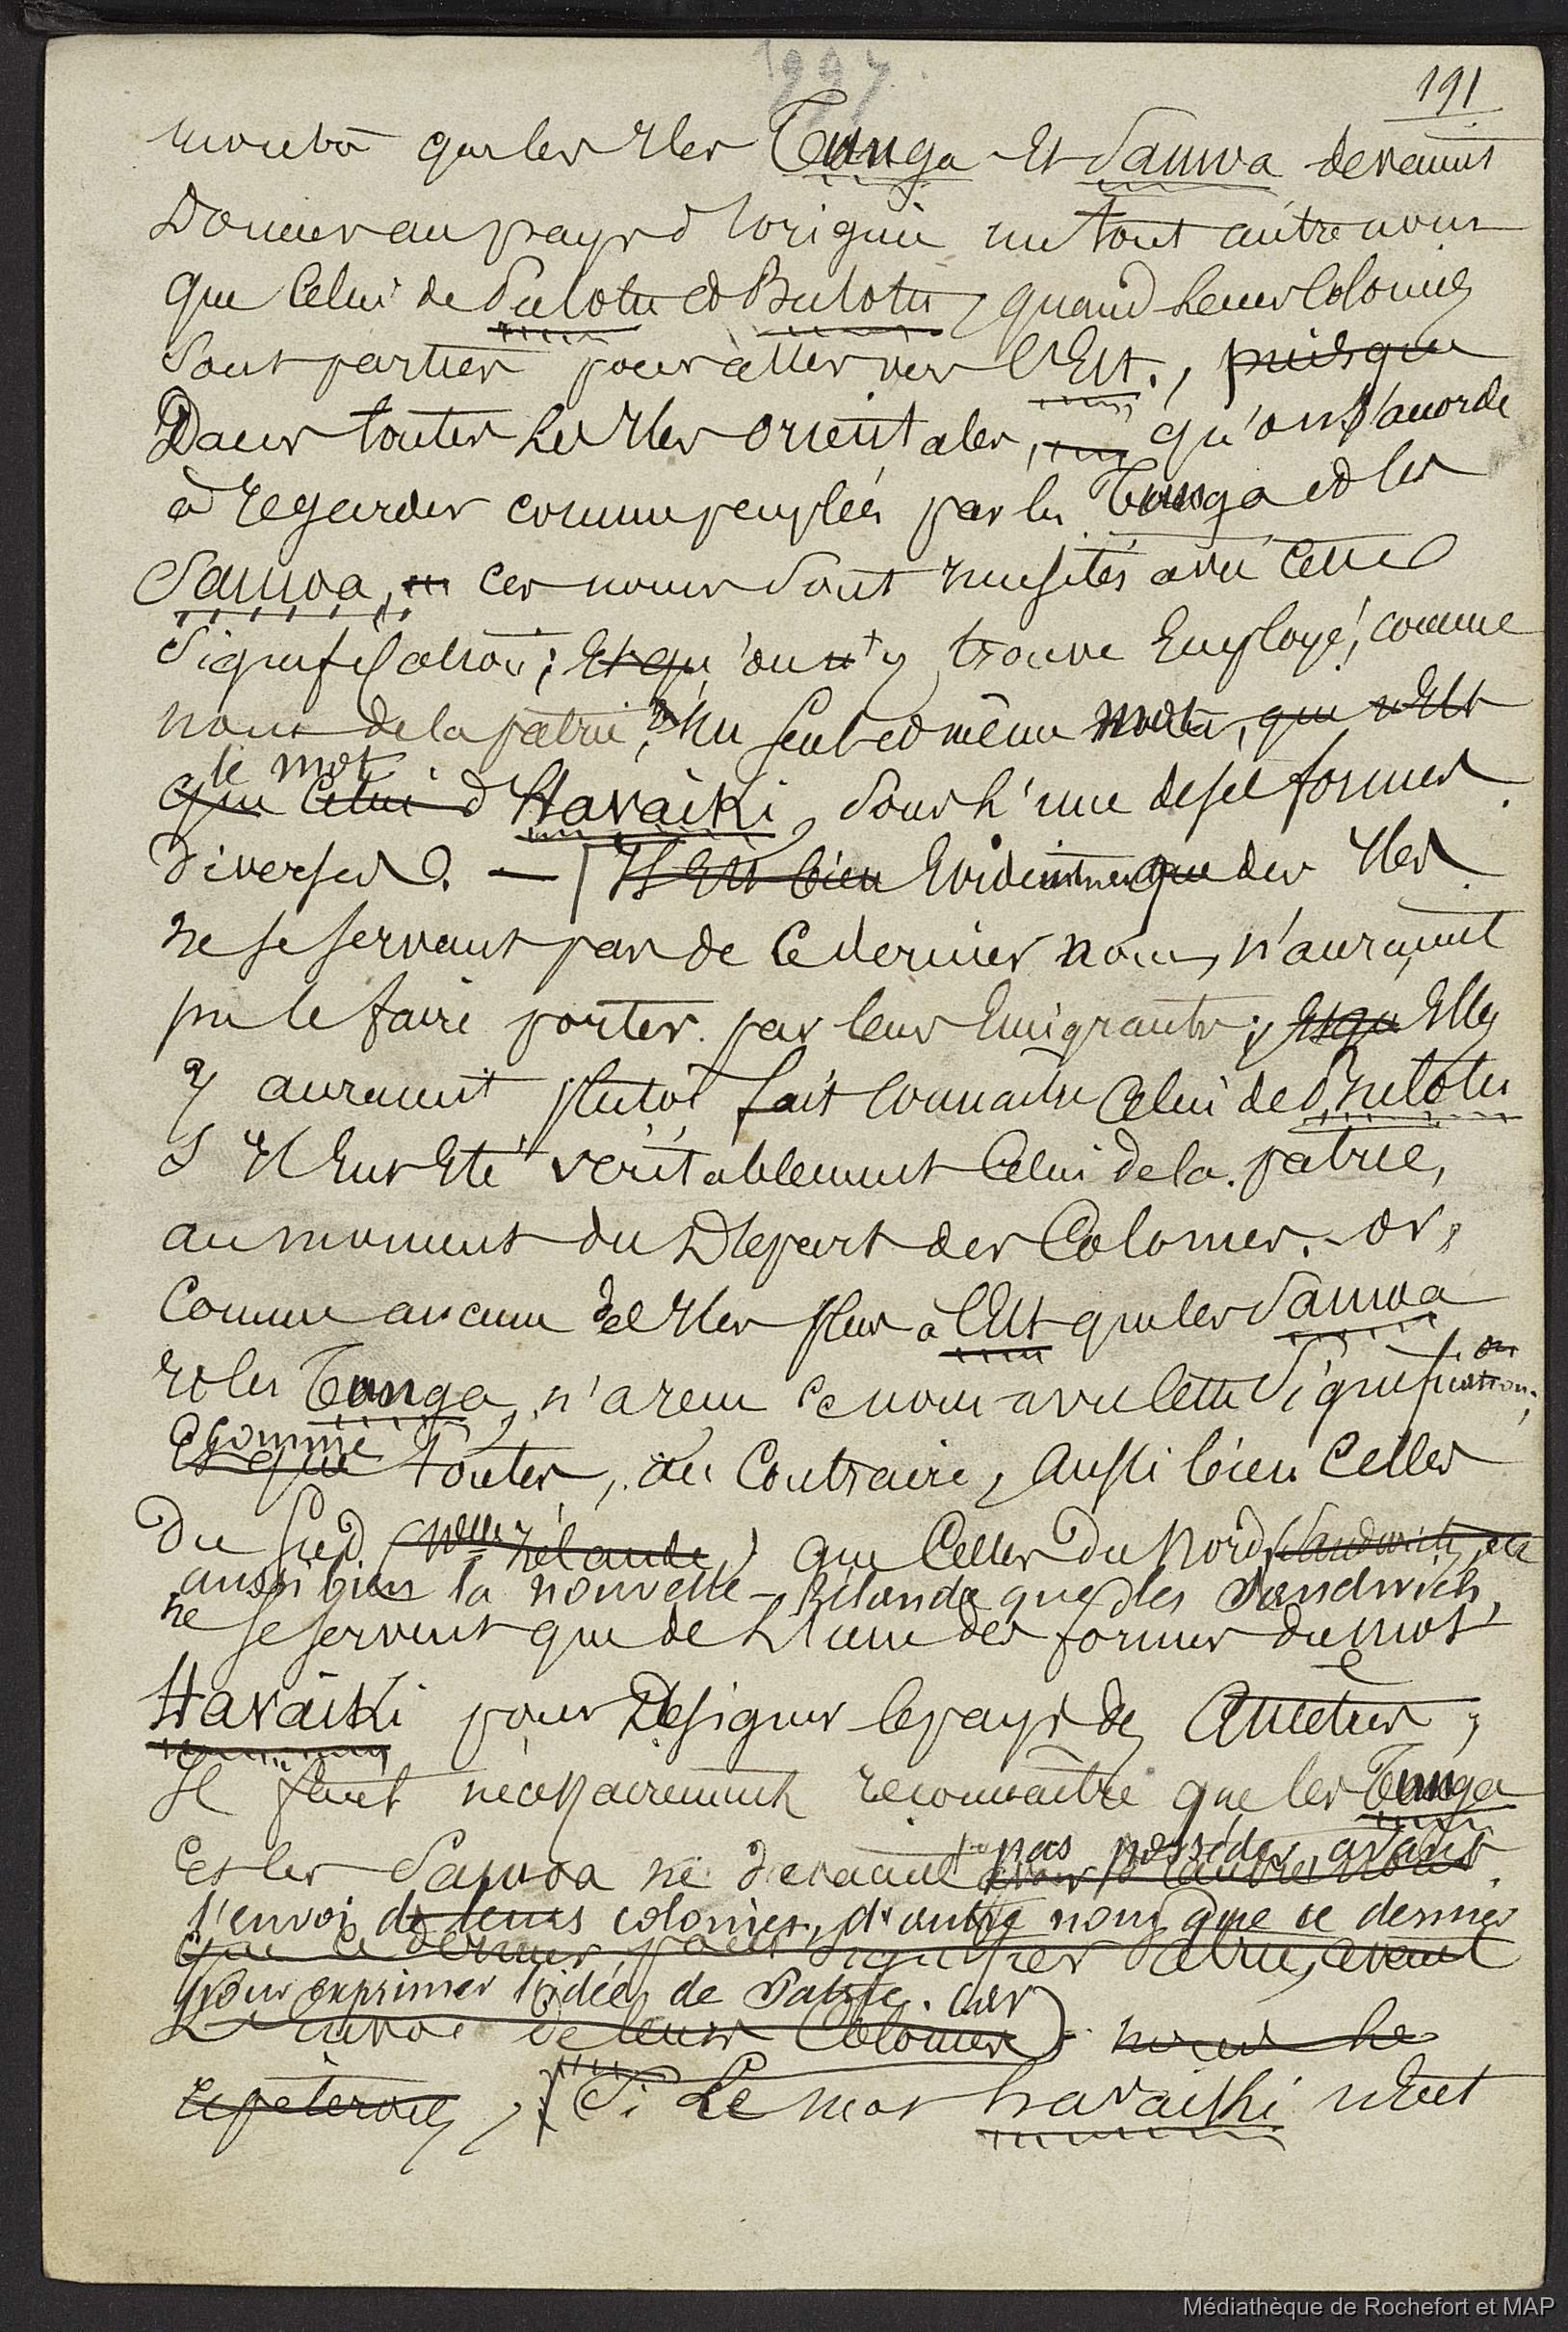 1997.
191
montrer que les Iles Tunga et Samoa devaient
donner au pays d'origine un tout autre nom
que celui de Pulotu et Bulotu, quand leurs Colonies
sont parties pour aller vers l'Est., puisque
Dans toutes les Iles orientales, qu'on s'accorde
à regarder comme peuplées par les Tunga et les
Samoa, ces noms sont inusités avec cette
signification; et qu'on n'y trouve employé, comme
nom de la patrie, qu'un seul et même mot, qui n'est
le mot
que celui d'Havaiki, sous l'une de ses formes
diverses. — Il est bien Evidemment que des Iles
ne se servant pas de ce dernier nom, n'auraient
pu le faire porter par leurs Emigrants; et que Elles
y auraient plutôt fait connaitre celui de Pulotu
s'Il eut Eté véritablement celui de la patrie,
au moment du Départ des Colonies. or,
comme aucune des Iles plus à l'Est que les Samoa
et les Tunga, n'a reçu ce nom avec cette signification;
comme
Et que toutes, au contraire, aussi bien celles
du Sud (Nelle Zélande) que celles du Nord (Sandwich, etc
aussi bien la nouvelle-Zélande que les Sandwich,
ne se servent que de l'une des formes du mot
Havaiki pour Désigner le pays des Ancêtres,
Il faut nécessairement reconnaitre que les Tunga
Et les Samoa ne devaient pas posséder, avant
avoir d'autre nom
l'envoi de leurs colonies, d'autre nom que ce dernier
que ce dernier, pour signifier Patrie, avant
pour exprimer l'idée de Patrie. car
L'Envoi de leurs Colonies) nous le
répéterons, Si Le mot havaiki n'Eut
Médiathèque de Rochefort et MAP